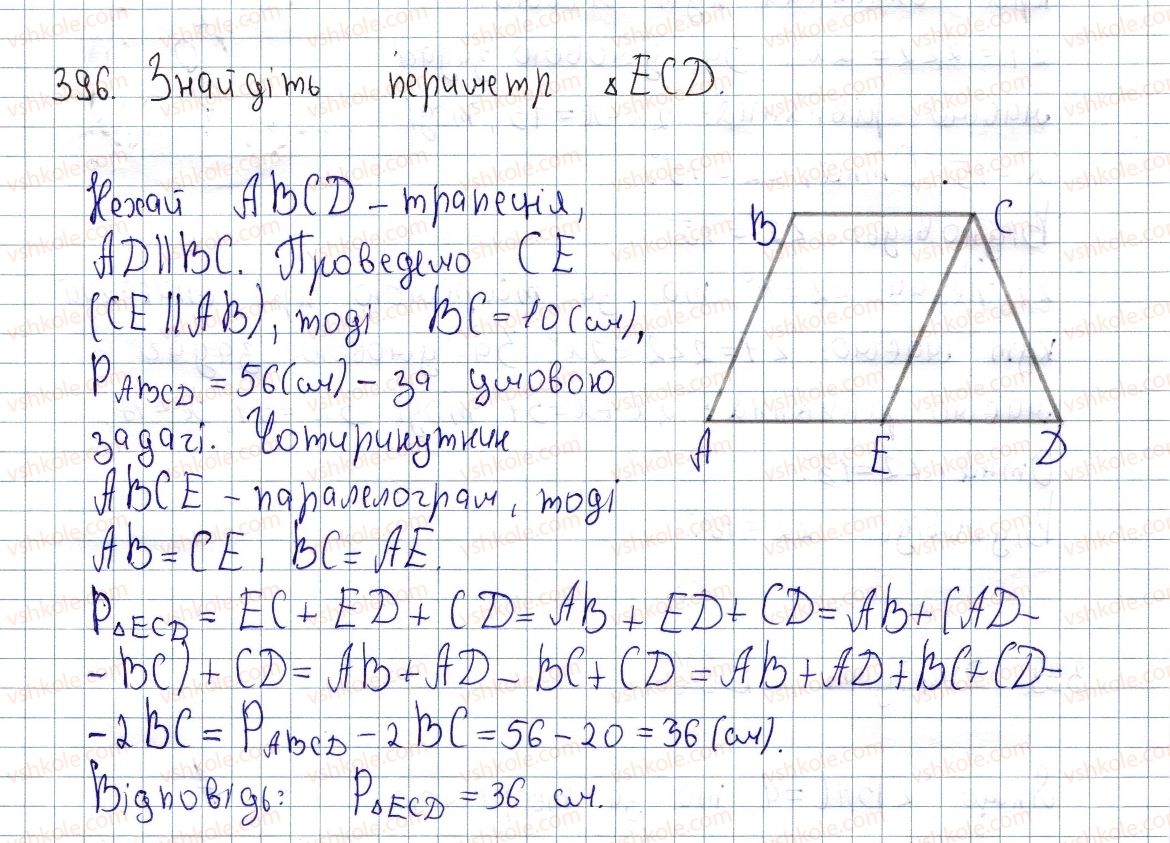 396. Знайдіть периметр △ECD.
Нехай ABCD – трапеція,
AD||BC. Проведемо CE
(CE||AB), тоді BC = 10 (см),
P ABCD = 56 (см) – за умовою
задачі. Чотирикутник
ABCE – паралелограм, тоді
AB = CE, BC = AE.
P △ECD = EC + ED + CD = AB + ED + CD = AB + (AD –
– BC) + CD = AB + AD – BC + CD = AB + AD + BC + CD –
– 2BC = P ABCD – 2BC = 56 – 20 = 36 (см).
Відповідь: P △ECD = 36 см.
B C
A E D
vshkole.com